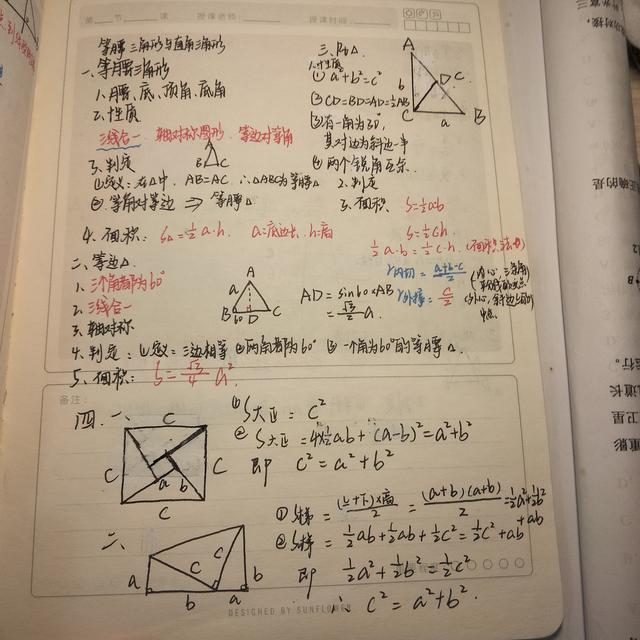 第 节 课 授课老师: 授课时间:
等腰三角形与直角三角形
一、等腰三角形
1.腰、底、顶角、底角
2.性质
三线合一 轴对称图形 等边对等角
3.判定
A
B C
①定义:在△中,AB=AC,∴△ABC为等腰△
②等角对等边 ⇒ 等腰△
4.面积: S△=½a·h. a=底边长,h=高
二、等边△
1.三个角都为60°
2.三线合一
3.轴对称
A
a
B 60 D C
AD=sin60×AB
=√3/2 a.
4.判定:①定义:三边相等 ②两角都为60° ③一个角为60°的等腰△.
5.面积: S=√3/4 a²
三、Rt△.
1.性质
① a²+b²=c²
② CD=BD=AD=½AB
③有一角为30°,
其对边为斜边一半
④两个锐角互余.
2.判定
3.面积 S=½ab
S=½ch
½a·b=½c·h.(面积法)
r内切=(a+b-c)/2
r外接=c/2
A
b D C
C a B
备注:
四.一、
C
C C
a b
C
① S大正=c²
② S大正=4×½ab+(a-b)²=a²+b²
即 c²=a²+b²
二、
a c c b
b a
① S梯=(上+下)×高/2=(a+b)(a+b)/2=½a²+½b²+ab
② S梯=½ab+½ab+½c²=½c²+ab
即 ½a²+½b²=½c²
∴ c²=a²+b².
DESIGNED BY SUNFLOWER